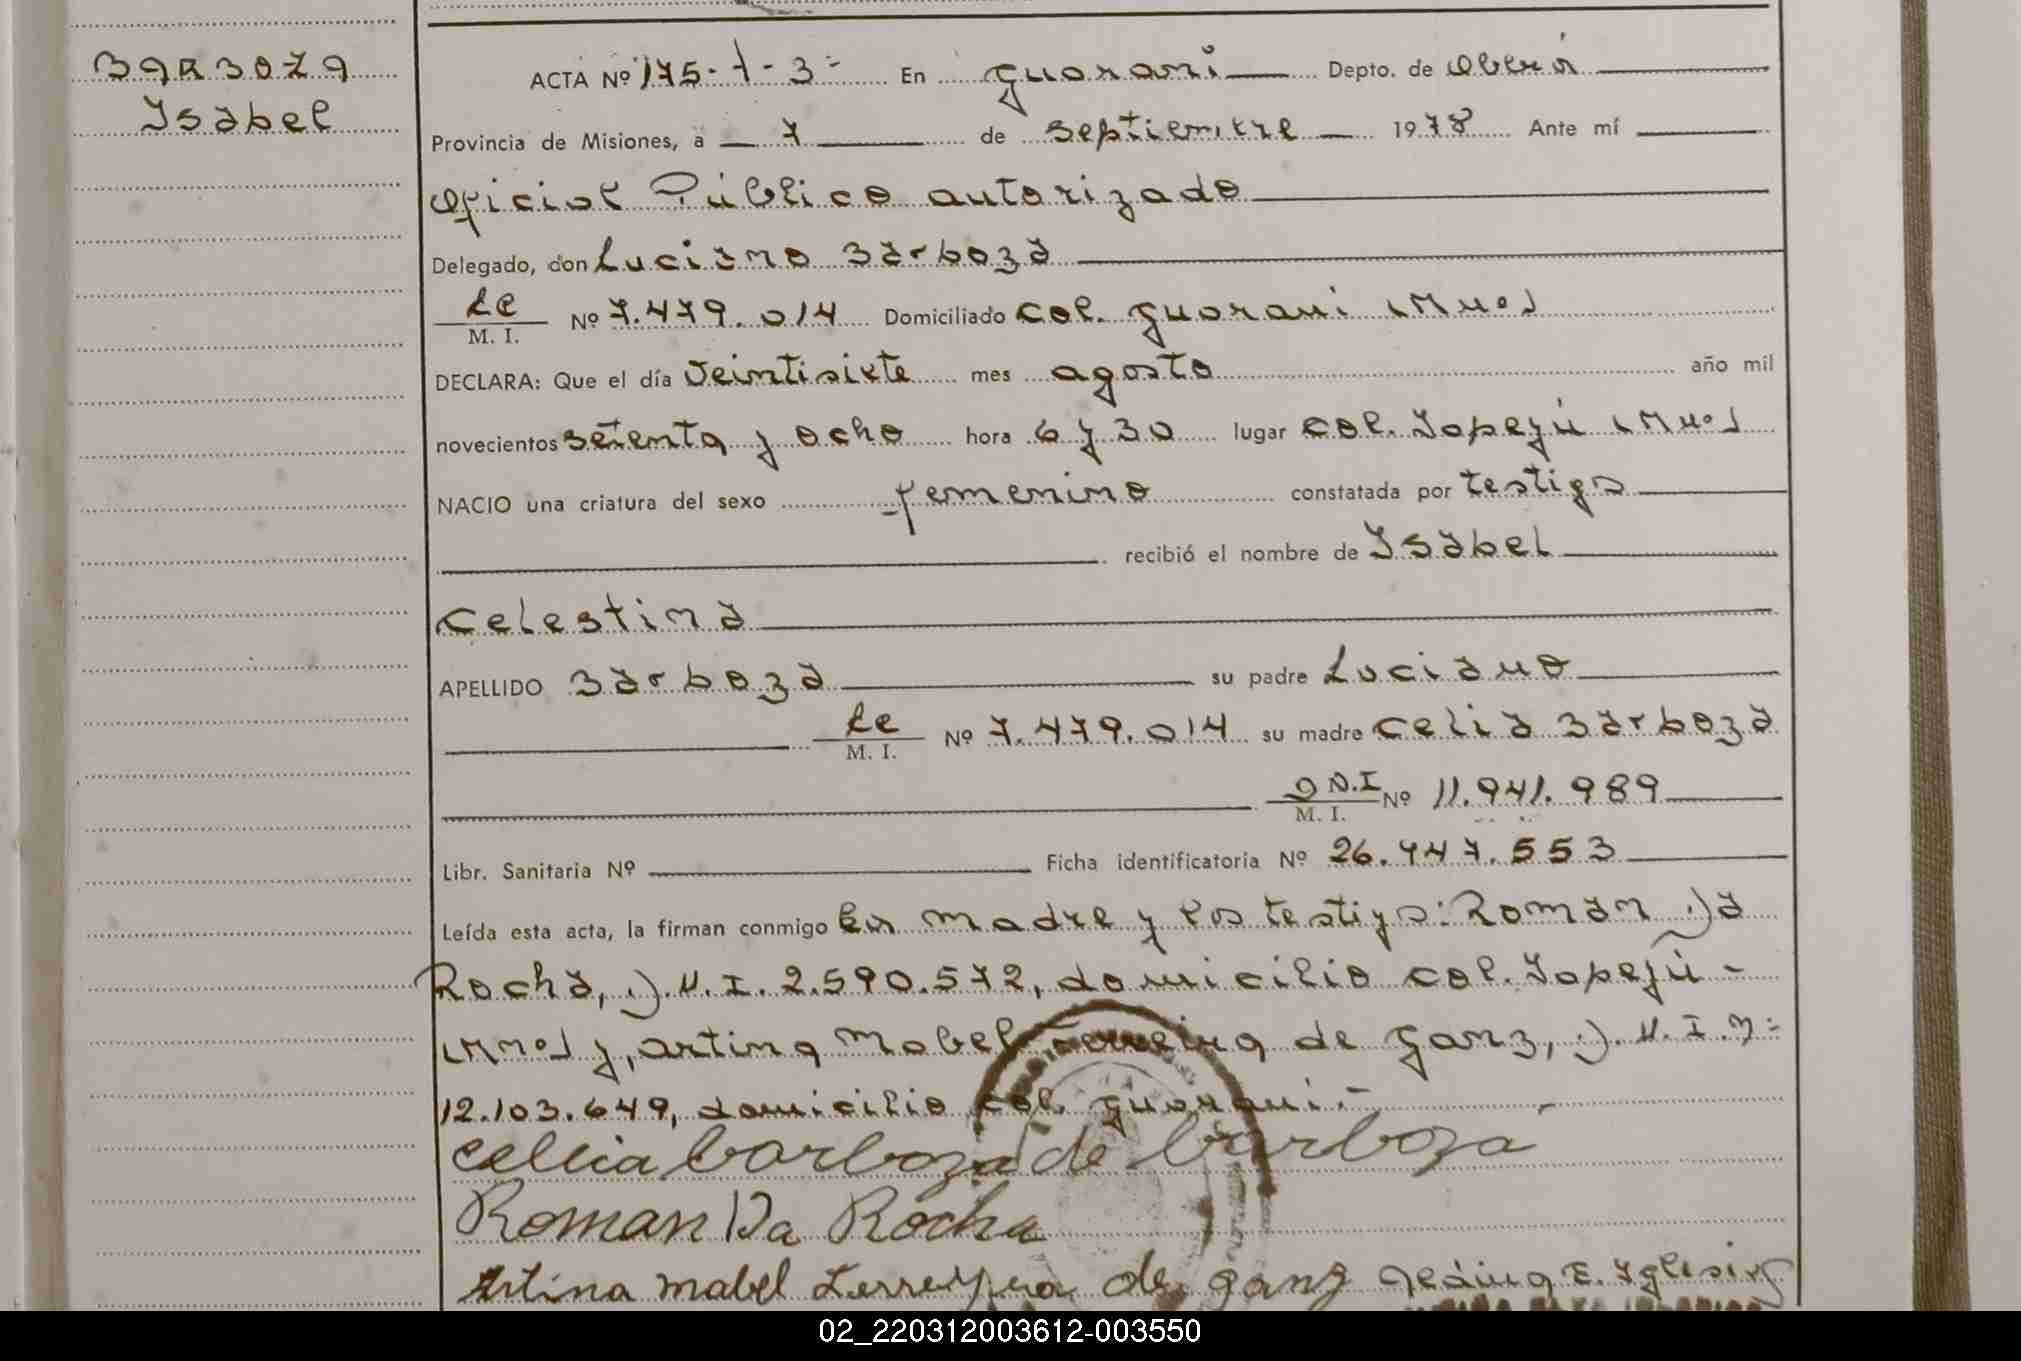 BARBOZA
Isabel
ACTA Nº 175-1-3= En guarani Depto. de oberá
Provincia de Misiones, a 7 de septiembre 1978 Ante mí
oficial Público autorizado
Delegado, don Luciano Barboza
LE
M. I. Nº 7.479.014 Domiciliado col. guarani (Mnes)
DECLARA: Que el día veintisiete mes agosto año mil
novecientos setenta y ocho hora 6 y 30 lugar col. Yapeyú (Mnes)
NACIO una criatura del sexo femenino constatada por testigos
recibió el nombre de Isabel
Celestina
APELLIDO Barboza su padre Luciano
LE
M. I. Nº 7.479.014 su madre Celia Barboza
D N.I
M. I. Nº 11.941.989
Libr. Sanitaria Nº Ficha identificatoria Nº 26.447.553
Leída esta acta, la firman conmigo la madre y los testigos: Roman Da
Rocha, D.N.I. 2.590.572, domicilio col. Yapeyú -
(Mnes) y, artina Mabel Ferreira de ganz, D.N.I.
12.103.649, domicilio col. guarani.-
Cellia barboza de barboza
Roman Da Rocha
Artina mabel Ferreyra de ganz E. Yglesias
02_220312003612-003550